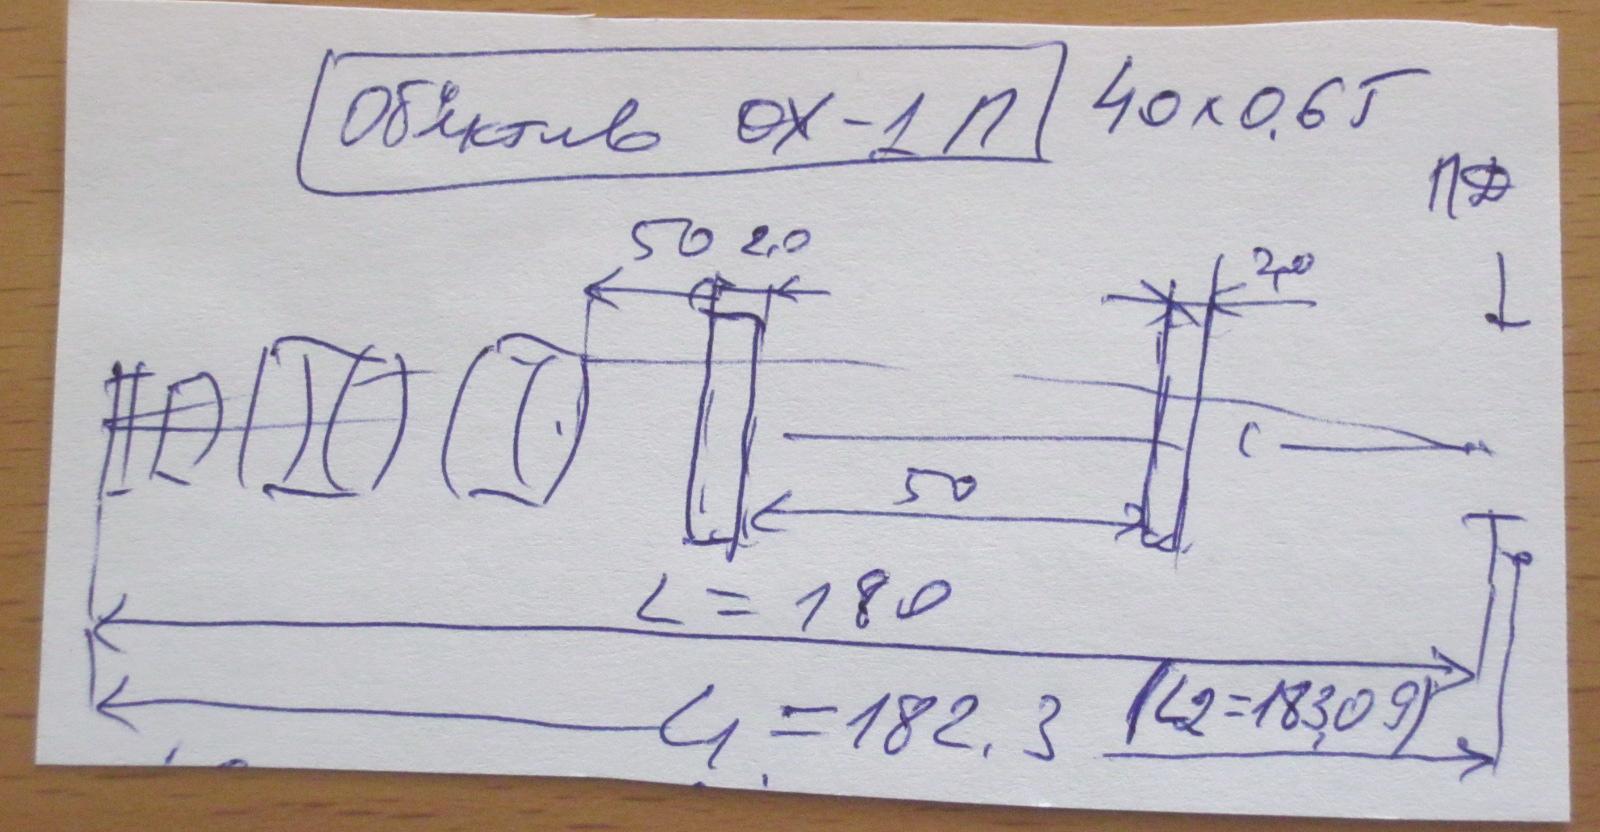 Объектив ОХ-1 П 40x0.65
ПФ
50 2,0
2,0
С
50
L = 180
L1 = 182.3 (L2=183,09)